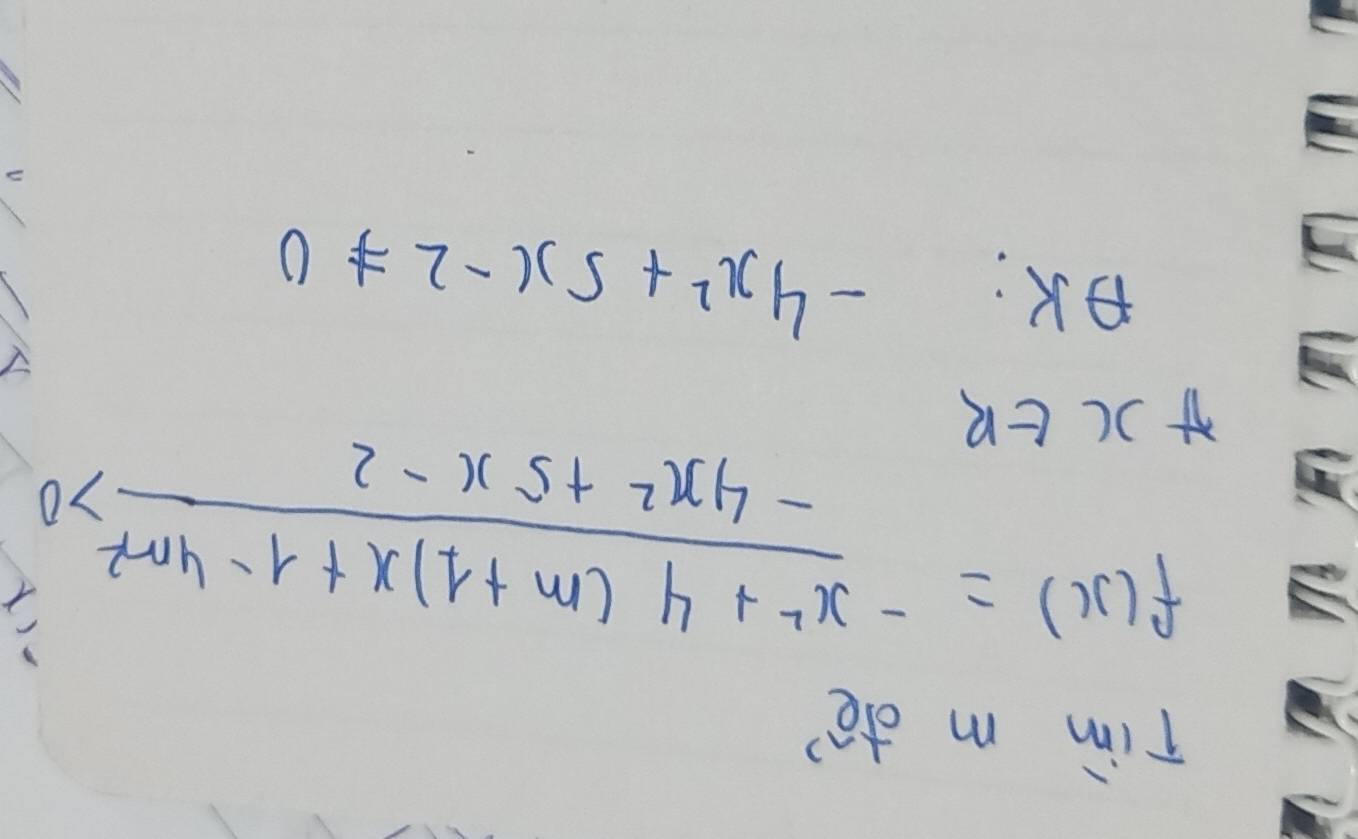 Tìm m để
f(x) = - x² + 4 (m + 1)x + 1 - 4m² / - 4x² + 5x - 2 > 0
∀ x ∈ R
ĐK: - 4x² + 5x - 2 ≠ 0